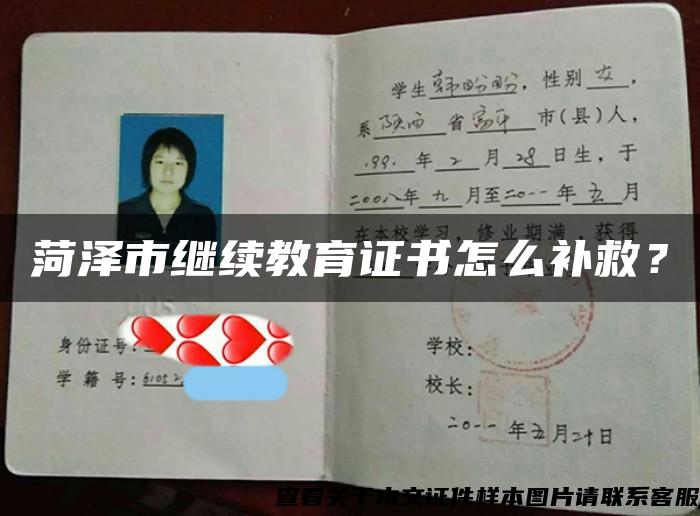 学生韩盼盼，性别女，
系陕西省富平市(县)人，
1991年2月28日生，于
二00八年九月至二0一一年五月
在本校学习，修业期满，获得
菏泽市继续教育证书怎么补救？
身份证号：
学籍号：61052
学校：
校长：
二0一一年五月二十日
查看关于本文证件样本图片请联系客服